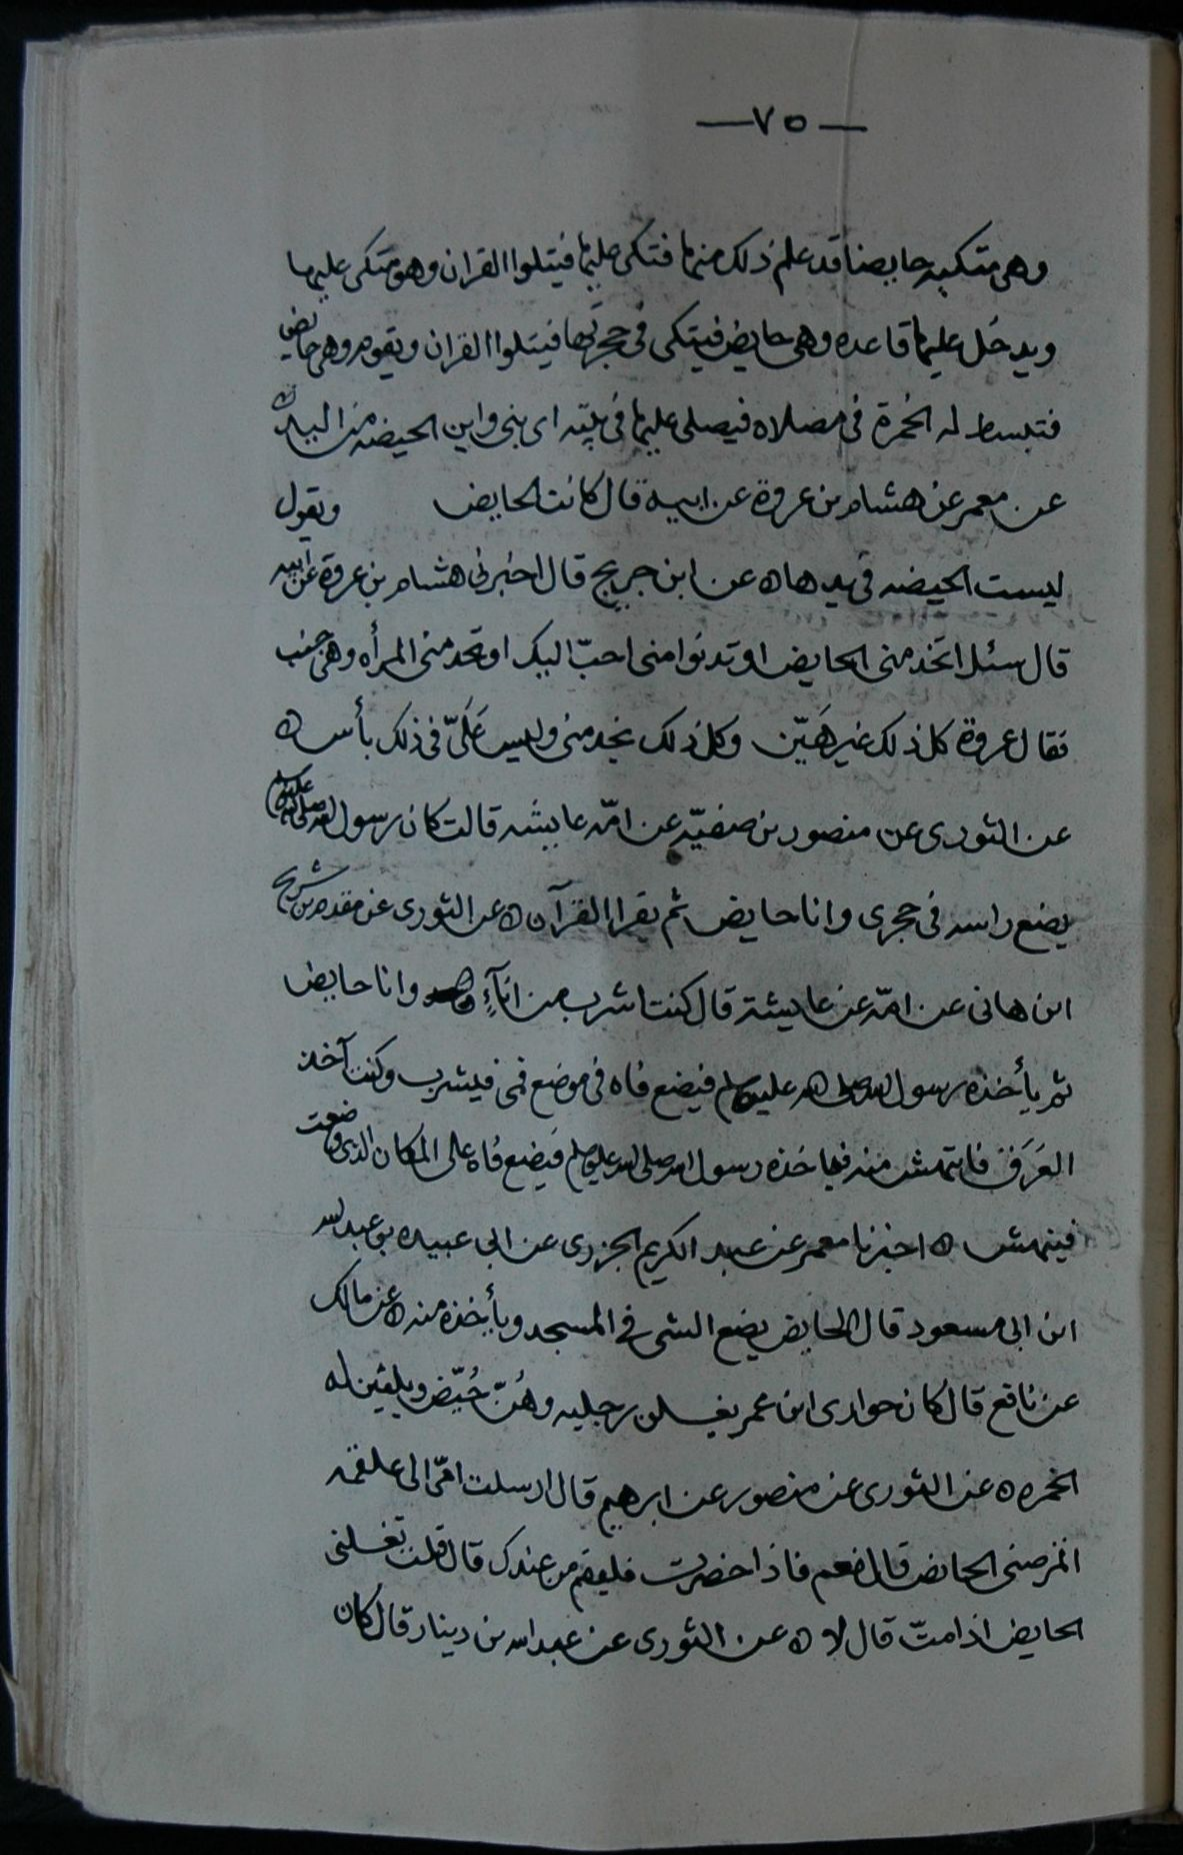 —٧٥—
وهى متكيه حايضا قد علم ذلك منها فتكى عليها فيتلوا القران وهو متكى عليها
ويدخل عليها قاعده وهى حايض فيتكى فى حجرتها فيتلوا القران ويقوم وهى حايض
فتبسط له الخُمرة فى مصلاه فيصلى عليها فى بيته اى بنى واين الحيضه من اليد ٥
عن معمر عن هشام بن عروة عن ابيه قال كانت الحايض ويقول
ليست الحيضه فى يدها ٥ عن ابن جريج قال اخبرنى هشام بن عروة عن ابيه
قال سئل اتخدمنى الحايض او تدنوا منى احبّ اليك او تخدمنى المرأه وهى جنب
فقال عروة كل ذلك غير هَيّن وكل ذلك تخدمنى وليس عَلَىّ فى ذلك بأس ٥
عن الثورى عن منصور بن صفيّه عن امّه عايشه قالت كان رسول الله صلى الله عليه وسلم
يضع راسه فى حجرى وانا حايض ثم يقرا القرآن ٥ عن الثورى عن مقدم بن شريح
ابن هانى عن امّه عن عايشة قال كنت اشرب من انآءٍ وانا حايض
ثم يأخذه رسول الله صلى الله عليه وسلم فيضع فاه فى موضع فمى فيشرب وكنت آخذ
العَرَق فانتهش منه فياخذه رسول الله صلى الله عليه وسلم فيضع فاه على المكان الذى وضعت
فينهش ٥ اخبرنا معمر عن عبد الكريم الجزرى عن ابى عبيده بن عبدالله
ابن ابى مسعود قال الحايض يضع الشى فى المسجد ويأخذه منه ٥ عن مالك
عن نافع قال كان حوارى ابن عمر يغسلن رجليه وهُنّ حُيّض ويلقين له
الخمره ٥ عن الثورى عن منصور عن ابرهيم قال ارسلت امّى الى علقمه
اتمرضنى الحايض قال نعم فاذا حضرت فليقم من عندك قال قلت تغسلنى
الحايض اذا متّ قال لا ٥ عن الثورى عن عبدالله بن دينار قال كان